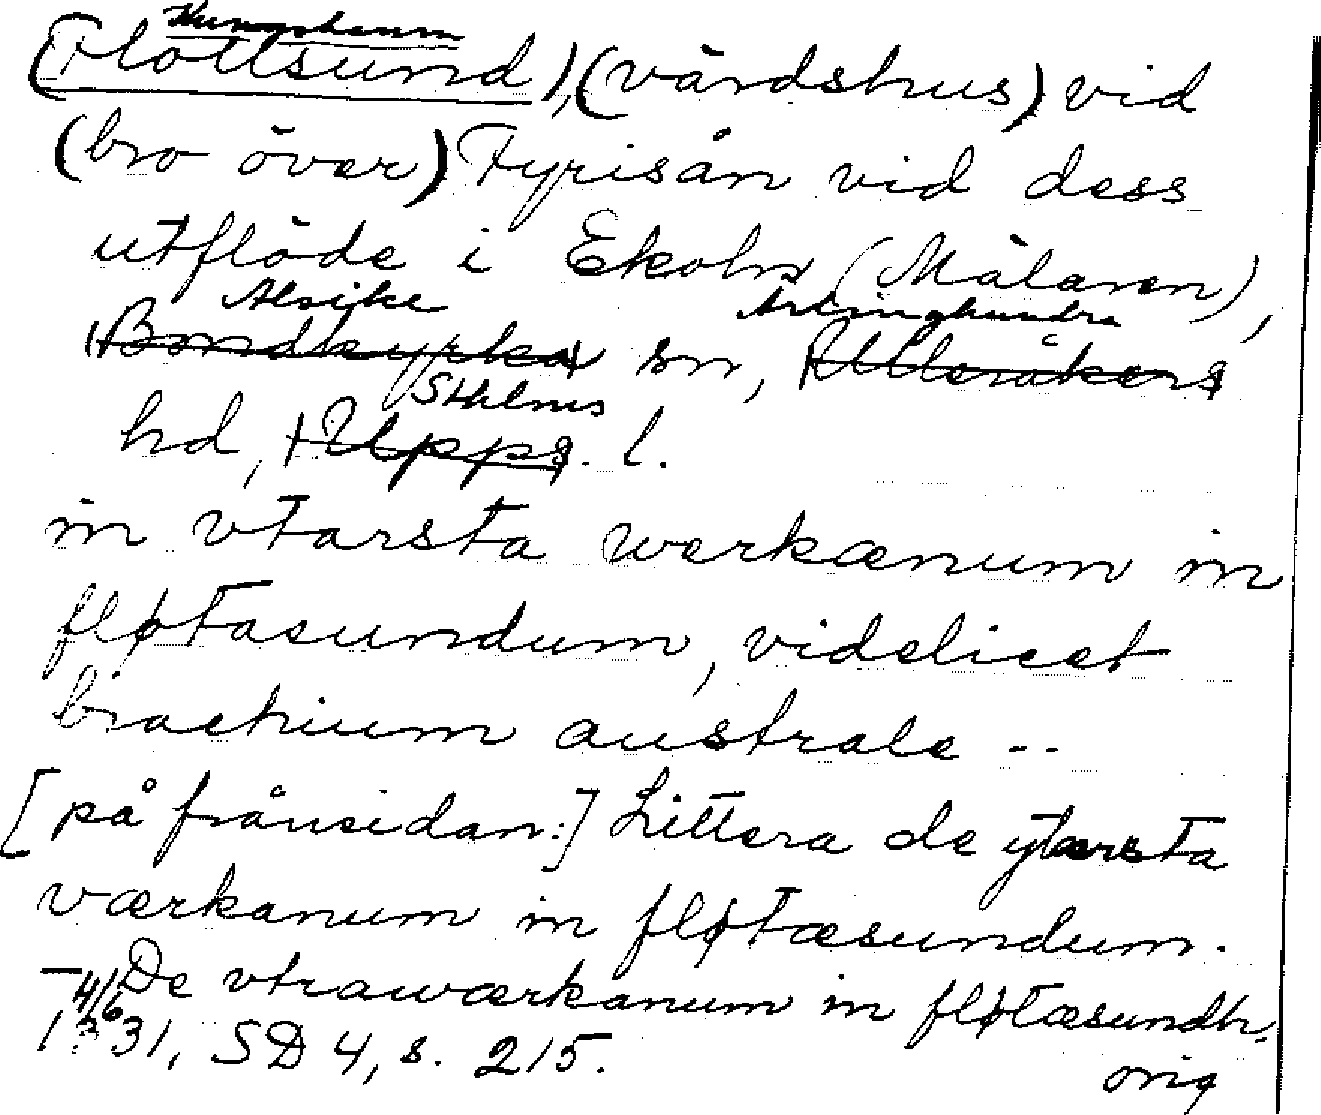 Kungshamn
(Flottsund), (värdshus) vid
(bro över) Fyrisån vid dess
utflöde i Ekoln (Mälaren),
Alsike Ärlinghundra
(Bondkyrka) sn, (Ulleråkers)
Sthlms
hd, (Upps). l.
in vtarsta werkænum in
fløtasundum, videlicet
brachium australe --
[på frånsidan:] Littera de ytærsta
værkanum in fløtæsundum.
— De vtrawærkanum in fløtæsundh,
4/6
1331, SD 4, s. 215.
orig